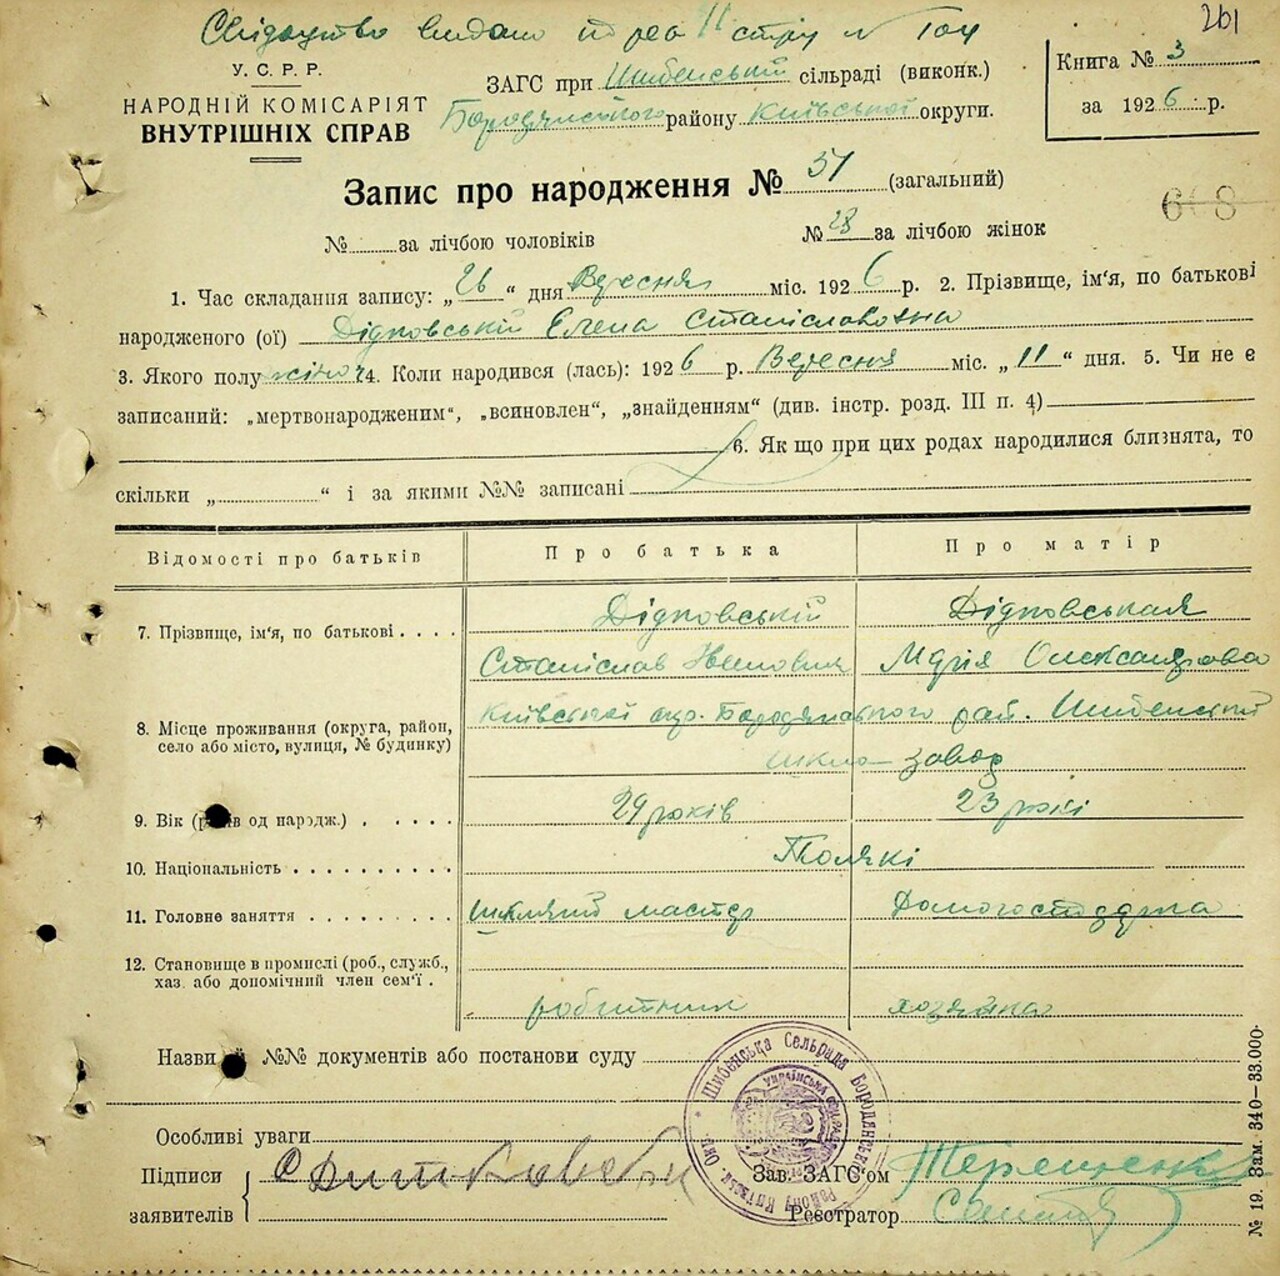 Свідоцтво видано стру № 104
261
У. С. Р. Р.
НАРОДНІЙ КОМІСАРІЯТ
ВНУТРІШНІХ СПРАВ
ЗАГС при Шибенській сільраді (виконк.)
Бородянського району Київської округи.
Книга № 3
за 1926 р.
Запис про народження № 51 (загальний)
608
№ за лічбою чоловіків
№ 28 за лічбою жінок
1. Час складання запису: „26“ дня Вересня міс. 1926 р. 2. Прізвище, ім‘я, по батькові
народженого (ої) Дідковській Елена Станіславовна
3. Якого полу жіноч 4. Коли народився (лась): 1926 р. Вересня міс. „11“ дня. 5. Чи не є
записаний: „мертвонародженим“, „всиновлен“, „знайденням“ (див. інстр. розд. III п. 4)
6. Як що при цих родах народилися близнята, то
скільки „ “ і за якими №№ записані
Відомості про батьків
Про батька
Про матір
7. Прізвище, ім‘я, по батькові . . . .
Дідковській
Дідковськая
Станіслав
Марія Олександрова
8. Місце проживання (округа, район,
село або місто, вулиця, № будинку)
Київської окр. Бородянського рай. Шибенський
шкло-завод
9. Вік (років од нар‍одж.) . . . . .
29 років
23 рокі
10. Національність . . . . . . . . . .
Полякі
11. Головне заняття . . . . . . . . .
шкляний мастер
Домогосподарка
12. Становище в промислі (роб., служб.,
хаз. або допомічний член сем‘ї .
робитник
хозяйка
Назви й №№ документів або постанови суду
Особливі уваги
Підписи
заявителів
С Дитковский
Шибенська Сельрада Бородянськ. Району Київськ. Окр.
Зав. ЗАГС‘ом Терещенко
Реєстратор
№ 19. Зам. 340—33.000.